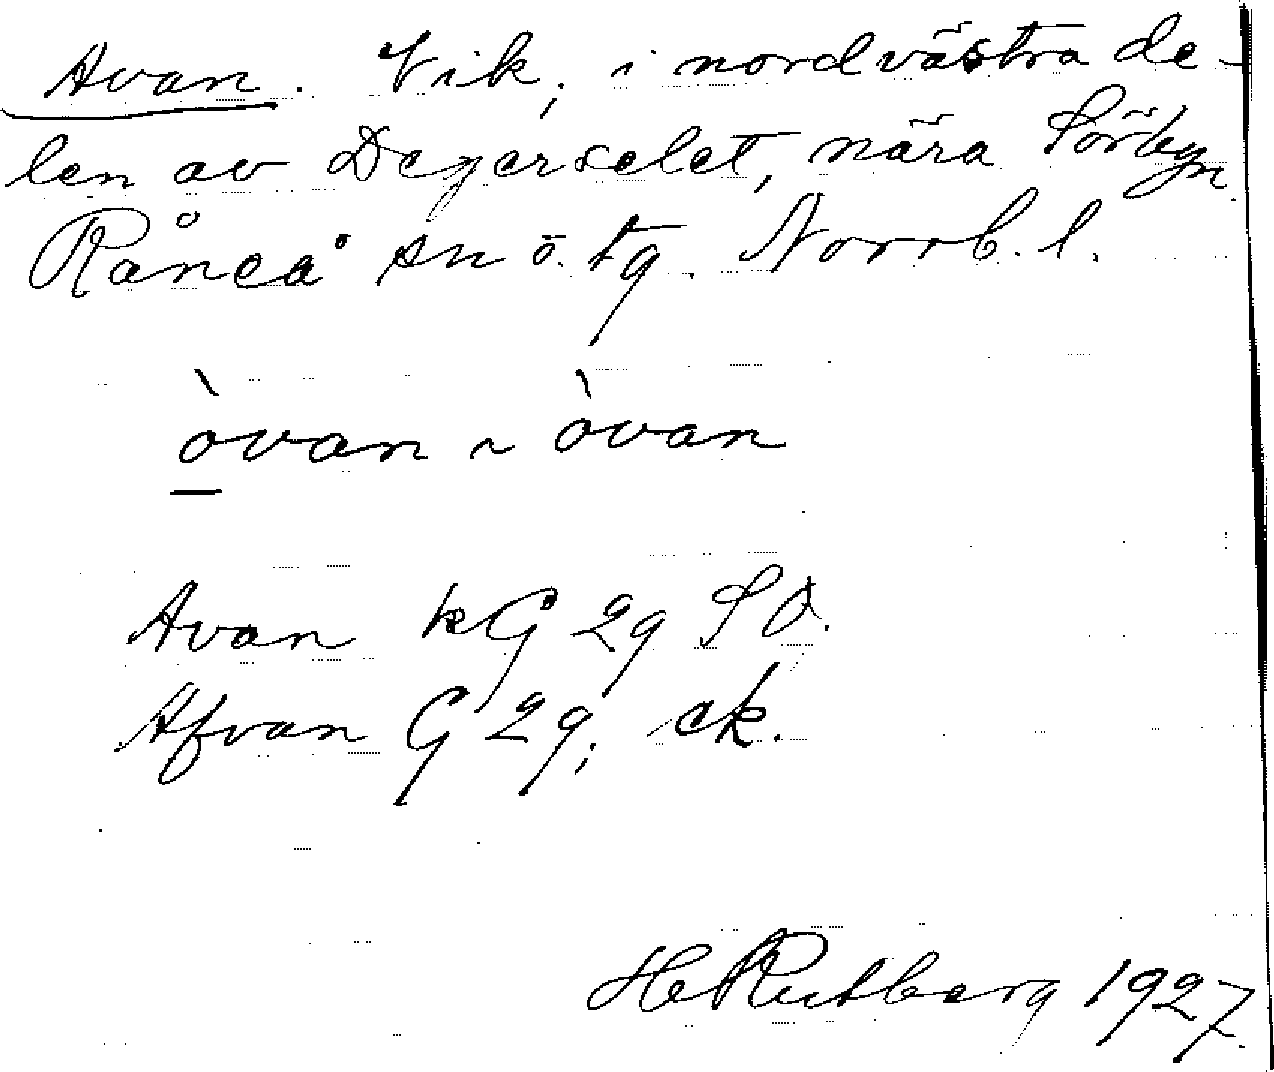 Avan. Vik, i nordvästra de-
len av Degerselet, nära Sörbyn
Råneå sn ö. tg. Norrb. l.
òvan ~ òvan
Avan kG 29 SO.
Afvan G 29; ek.
H Rutberg 1927.